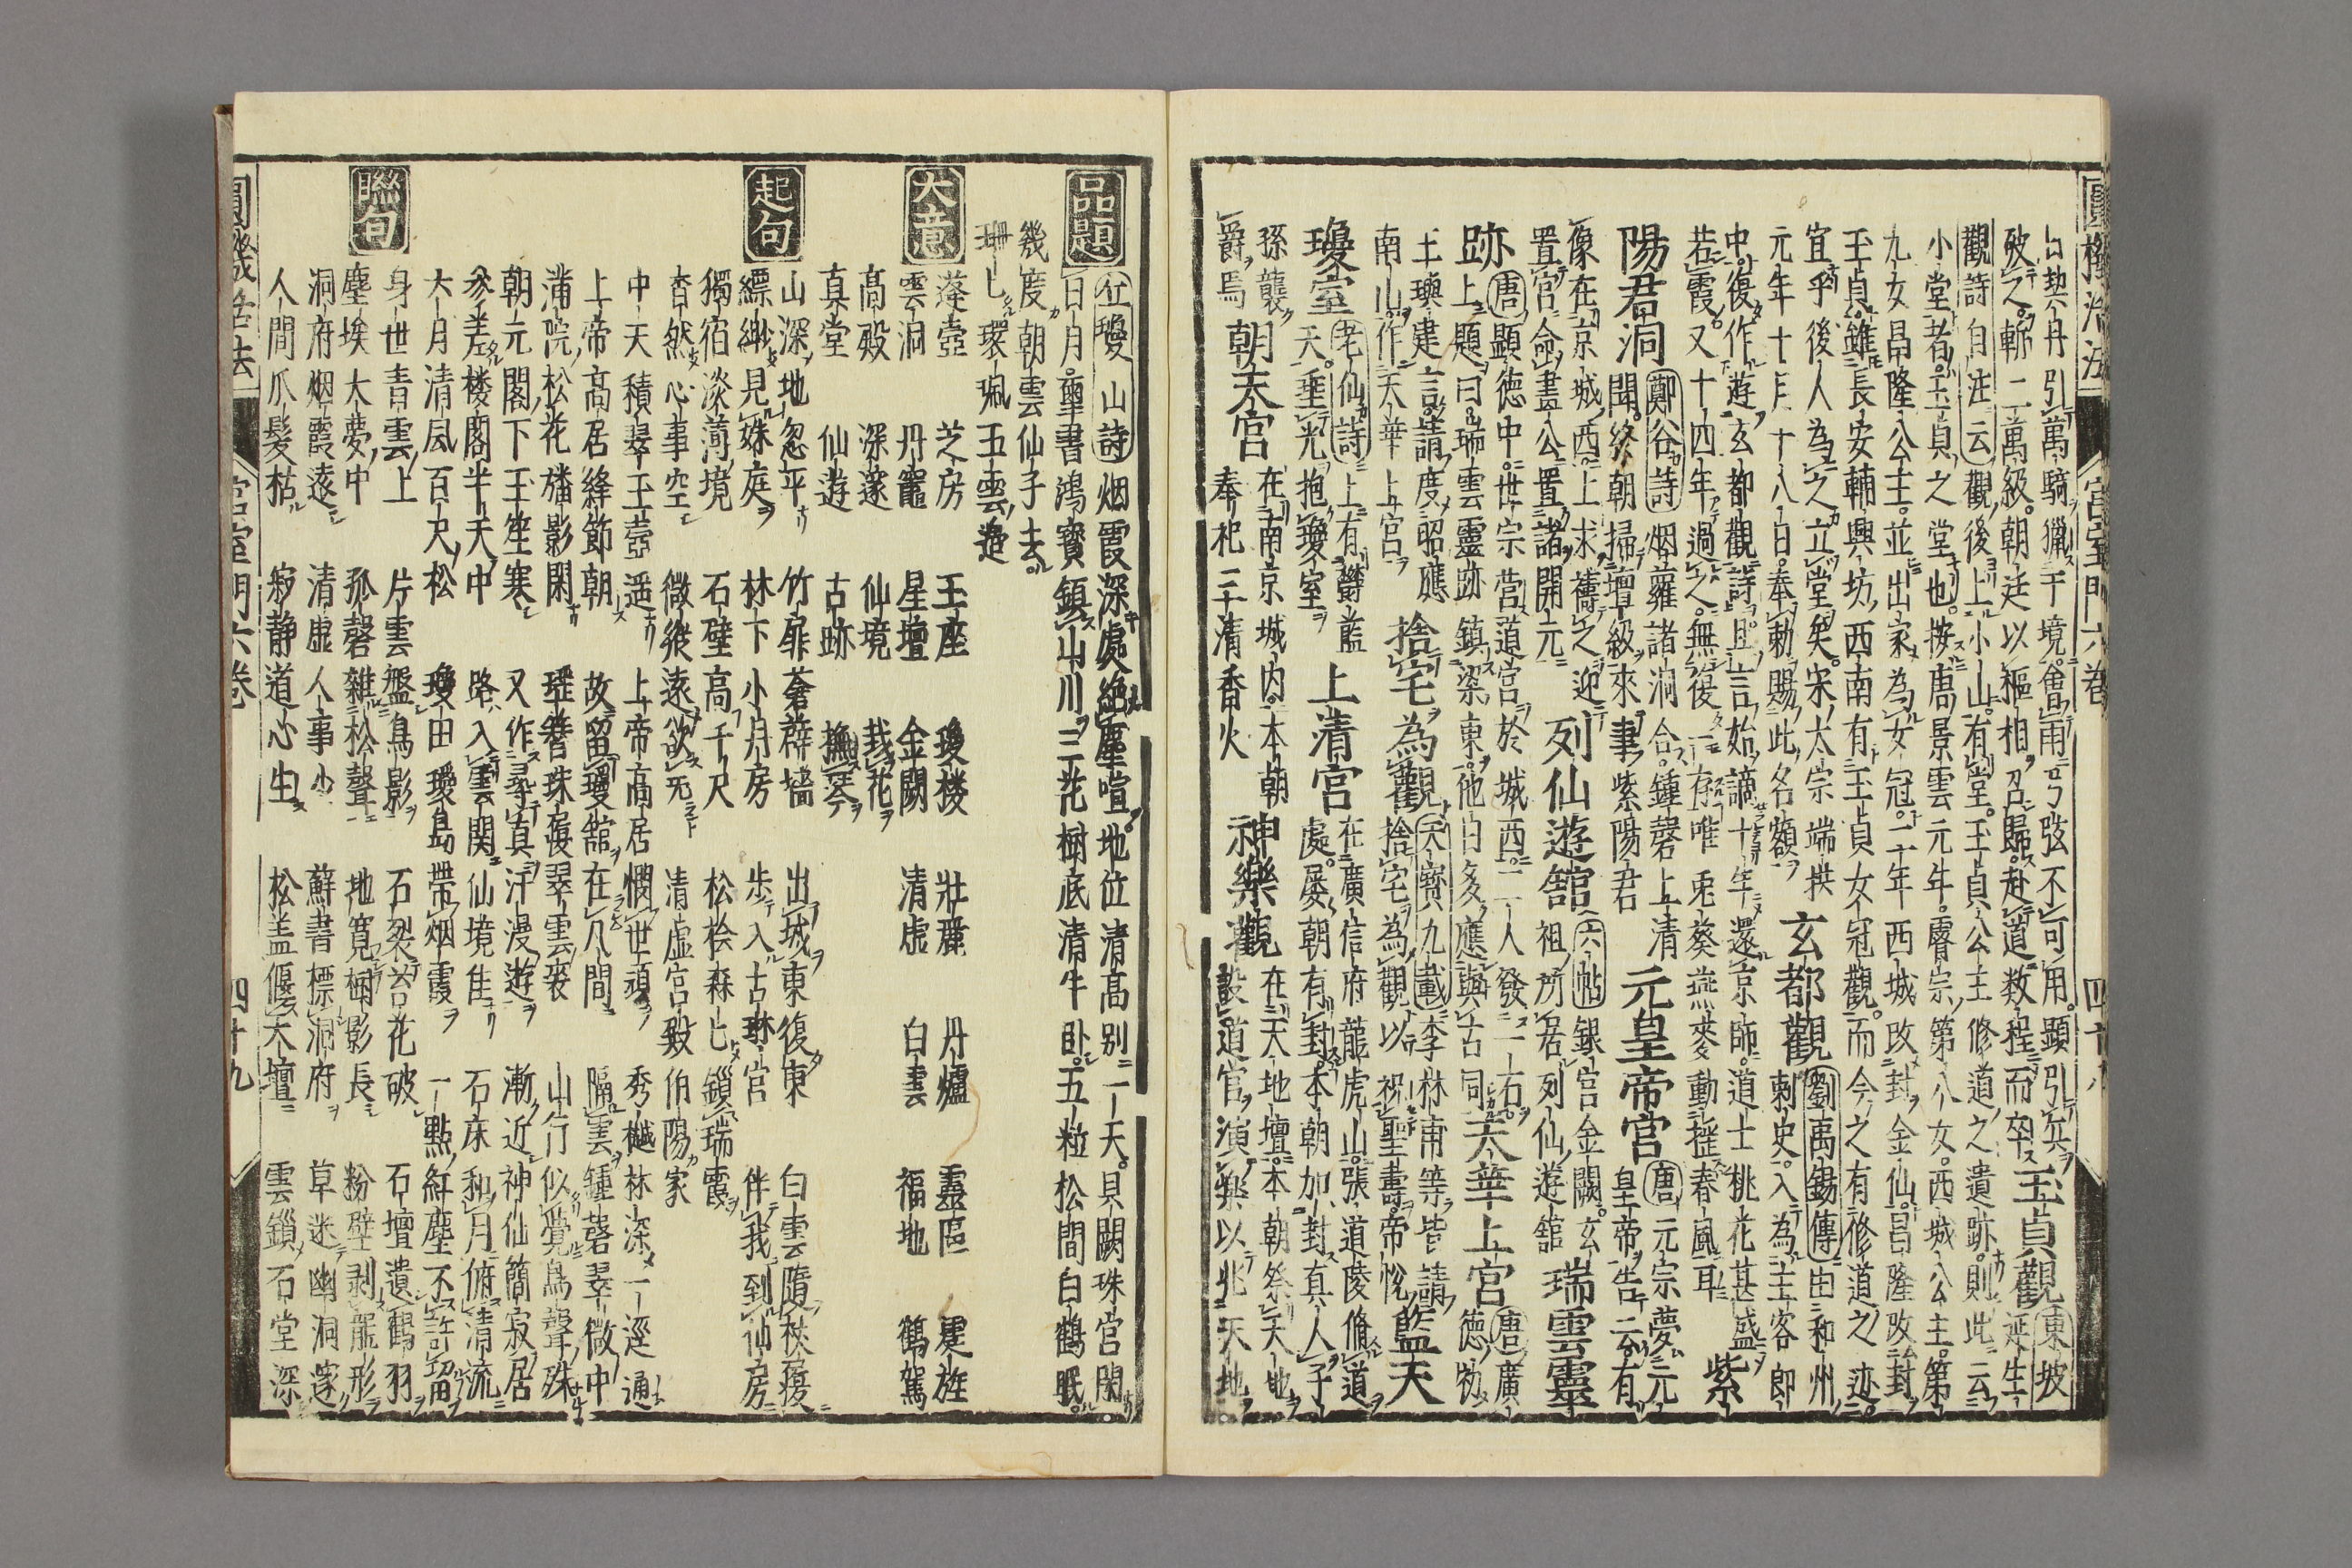 圓機活法
宮室門六巻
四十八
曰契丹引萬騎獵于境會雨弓弦不可用顕引兵
破之斬二萬級朝廷以樞相召歸赴道数程而卒
玉貞觀
東坡
觀詩自注云
延生
觀後上小山有堂玉貞公主修道之遺跡則此云
小堂者玉貞之堂也按唐景雲元年睿宗第八女西城公主第
九女昌隆公主並出家為女冠二年西城改封金仙昌隆改封
玉貞雖長安輔興坊西南有玉貞女冠觀而今之有修道之迹
宜乎後人為之立堂矣宋太宗端拱
元年十月十八日奉勅賜此名額
玄都觀
劉禹錫傳
由和州
刺史入為主客郎
中復作遊玄都觀詩且言始謫十年還京師道士桃花甚盛
若霞又十四年過之無復一存唯兎葵燕麥動揺春風耳
紫
陽君洞
鄭谷詩
烟蘿諸洞合鍾磬上清
聞終朝掃壇級來事紫陽君
元皇帝宮
唐
元宗夢元
皇帝告云有
像在京城西上求禱之迎
置宮命畫公置諸開元
列仙遊舘
六帖
銀宮金闕玄
祖所居列仙遊舘
瑞雲靈
跡
唐
顕徳中世宗营道宮於城西二一人發一石
上題曰瑞雲靈跡鎮梁東他日多應與古同
太華上宮
唐
廣
徳初
王璵建言請度昭應
南山作天華上宮
捨宅為觀
天寳九載
李林甫等皆請
捨宅為觀以祝聖壽帝悅
藍天
瓊室
老仙詩
上有欝藍
天垂光抱瓊室
上清宮
在廣信府龍虎山張道陵脩道
處屡朝有封本朝加封真人子
孫襲
爵焉
朝天宮
在南京城内本朝
奉祀三清香火
神樂觀
在天地壇本朝祭天地
設道官演樂以兆天地
品題
位瓊山詩
烟霞深處絶塵喧地位清高别一天貝闕珠宮閑
日月璽書鴻寳鎮山川三花樹底清牛卧五粒松間白鶴眠
幾度朝雲仙子去
珊珊環珮五雲邊
大意
蓬壺　芝房　玉座　瓊楼　壮麗　丹爐　靈區　霓旌
雲洞　丹竈　星壇　金闕　清虚　白雲　福地　鶴駕
高殿　深邃　仙境　栽花
真堂　仙遊　古跡　撫琴
起句
山深地忽平　竹扉蒼薜墻　出城東復東　白雲隨杖履
縹緲見姝庭　林下小月房　步入古琳宮　伴我到仙房
獨宿淡蕩境　石壁高千尺　松桧森匕鎖瑞霞
杳然心事空　微縱遠欲无　清虚宮殿伯陽家
中天積翠玉壺遥　上帝高居憫世頑　秀樾林深一逕通
上帝高居絳節朝　故留瓊舘在人間　隔雲鍾磬翠微中
蒲院松花旛影閑　瑶簪珠履翠雲裘　山行似覺鳥聲殊
朝元閣下玉笙寒　又作尋真汗漫遊　漸近神仙簡寂居
參差楼閣半天中　路入雲関仙境佳　石床和月俯清流
大月清風百尺松　瓊田瓊島帶烟霞　一點紅塵不許留
聯句
身世青雲上　片雲盤鳥影　石裂苔花破　石壇遺鶴羽
塵埃大夢中　孤磬雜松聲　地寛樹影長　粉壁剥龍形
洞府烟霞遠　清虚人事少　蘚書標洞府　草迷幽洞邃
人間爪髪枯　寂静道心生　松盖偃天壇　雲鎖石堂深
圓機活法
宮室門六巻
四十九